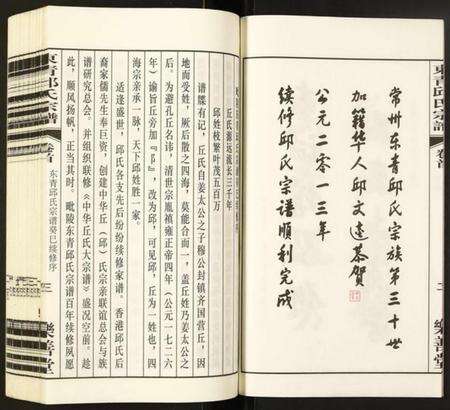 東青邱氏宗譜 卷首 二 樂善堂
常州东青邱氏宗族第三十世
加籍华人邱文達恭贺
公元二零一三年
续修邱氏宗谱顺利完成
丘氏源远流长三千年
邱姓枝繁叶茂五百万
谱牒有记，丘氏自姜太公之子穆公封镇齐国营丘，因
地而受姓，厥后散之四海，莫能合谱。盖丘姓乃姜太公之
后。为避孔丘名讳，清世宗胤禛雍正帝四年（公元一七二六
年）谕旨丘旁加「阝」，改为邱，可见邱、丘为一姓也，四
海宗亲承一脉，天下邱姓胜一家。
适逢盛世，邱氏各支先后纷纷续修家谱。香港邱氏后
裔家儒先生奉巨资，创建中华丘（邱）氏宗亲联谊总会与族
谱研究总会，并组织联修《中华丘氏大宗谱》盛况空前。趁
此，顺风扬帆，正当其时。毗陵东青邱氏宗谱百年续修夙愿
東青邱氏宗譜 卷首 东青邱氏宗谱癸巳续修序 三 樂善堂